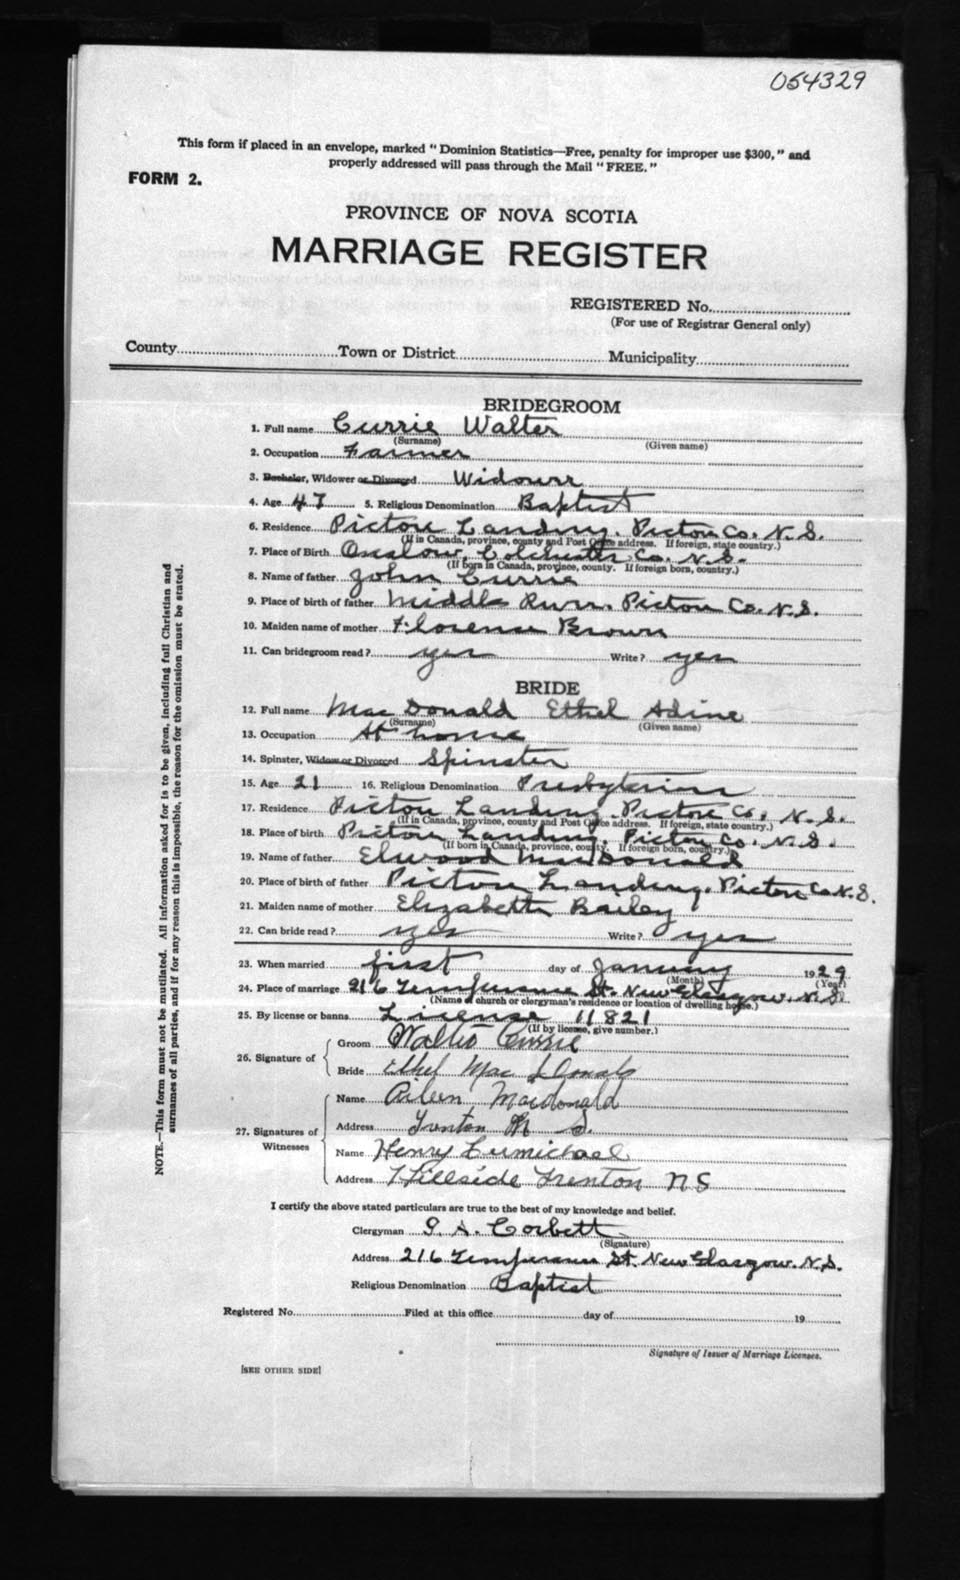 054329
This form if placed in an envelope, marked "Dominion Statistics—Free, penalty for improper use $300," and
properly addressed will pass through the Mail "FREE."
FORM 2.
PROVINCE OF NOVA SCOTIA
MARRIAGE REGISTER
REGISTERED No.
(For use of Registrar General only)
County Town or District Municipality
BRIDEGROOM
1. Full name Currie Walter
(Surname) (Given name)
2. Occupation Farmer
3. Bachelor, Widower or Divorced Widowrr
4. Age 47 5. Religious Denomination Baptist
6. Residence Pictou Landing, Pictou Co. N.S.
(If in Canada, province, county and Post Office address. If foreign, state country.)
7. Place of Birth Onslow, Colchester Co. N.S.
(If born in Canada, province, county. If foreign born, country.)
8. Name of father John Currie
9. Place of birth of father Middle River, Pictou Co. N.S.
10. Maiden name of mother Florence Brown
11. Can bridegroom read? yes Write? yes
BRIDE
12. Full name MacDonald Ethel Adine
(Surname) (Given name)
13. Occupation At home
14. Spinster, Widow or Divorced Spinster
15. Age 21 16. Religious Denomination Presbyterian
17. Residence Pictou Landing, Pictou Co. N.S.
(If in Canada, province, county and Post Office address. If foreign, state country.)
18. Place of birth Pictou Landing, Pictou Co. N.S.
(If born in Canada, province, county. If foreign born, country.)
19. Name of father Elwood MacDonald
20. Place of birth of father Pictou Landing, Pictou Co. N.S.
21. Maiden name of mother Elizabeth Bailey
22. Can bride read? yes Write? yes
23. When married first day of January 1929
(Month) (Year)
24. Place of marriage 216 Temperance St. New Glasgow, N.S.
(Name of church or clergyman's residence or location of dwelling home.)
25. By license or banns License 11821
(If by license, give number.)
26. Signature of
Groom Walter Currie
Bride Ethel MacDonald
27. Signatures of Witnesses
Name Aileen Macdonald
Address Trenton N S.
Name Henry Carmichael
Address Hillside Trenton NS
I certify the above stated particulars are true to the best of my knowledge and belief.
Clergyman G. A. Corbett
(Signature)
Address 216 Temperance St. New Glasgow. N.S.
Religious Denomination Baptist
Registered No. Filed at this office day of 19
Signature of Issuer of Marriage Licenses.
[SEE OTHER SIDE]
NOTE.—This form must not be mutilated. All information asked for is to be given, including full Christian and
surnames of all parties, and if for any reason this is impossible, the reason for the omission must be stated.